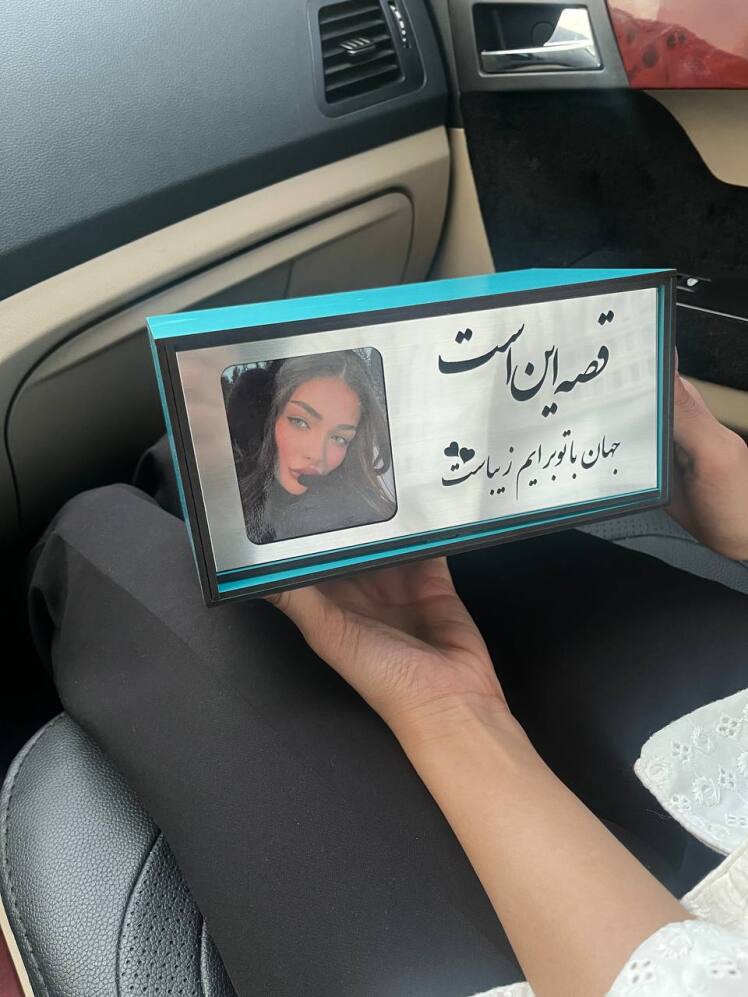 قصه این است
جهان با تو برایم زیباست